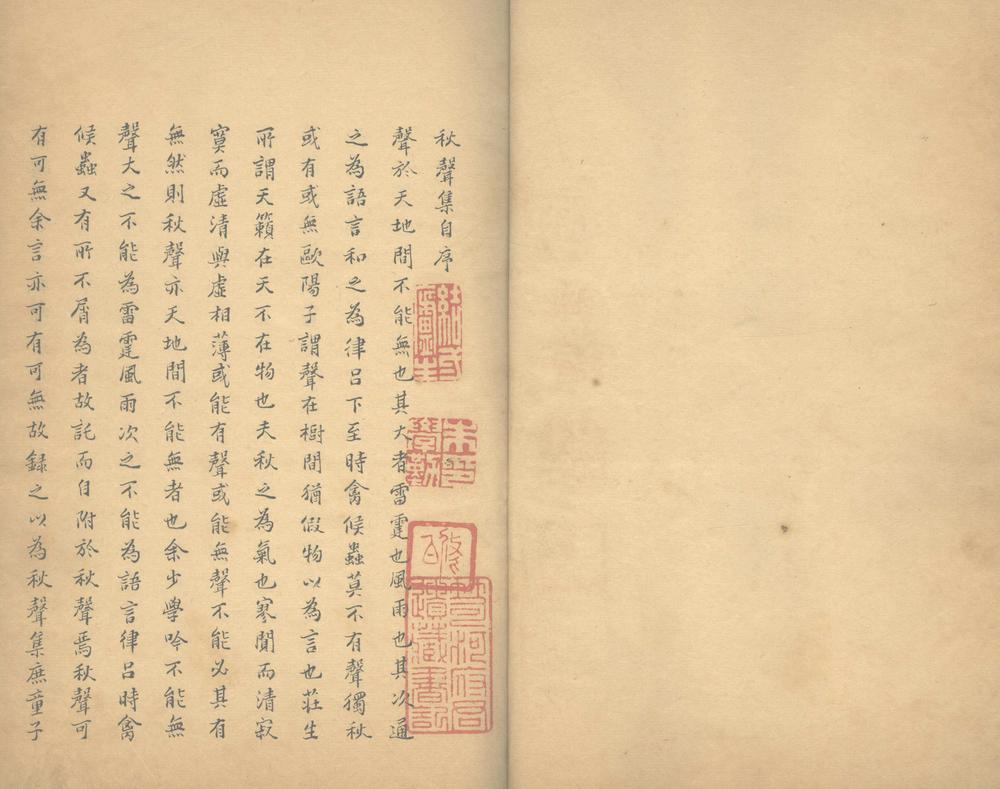 秋聲集自序
聲於天地間不能無也其大者雷霆也風雨也其次通
之為語言和之為律呂下至時禽候蟲莫不有聲獨秋
或有或無歐陽子謂聲在樹間猶假物以為言也莊生
所謂天籟在天不在物也夫秋之為氣也寥閴而清寂
寞而虛清與虛相薄或能有聲或能無聲不能必其有
無然則秋聲亦天地間不能無者也余少學吟不能無
聲大之不能為雷霆風雨次之不能為語言律呂時禽
候蟲又有所不屑為者故託而自附於秋聲焉秋聲可
有可無余言亦可有可無故錄之以為秋聲集庶童子